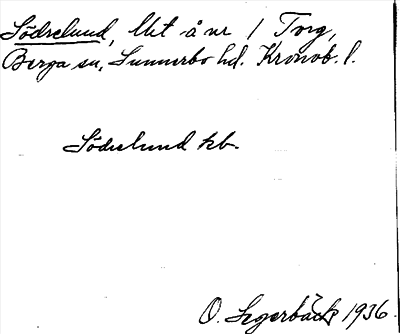 Södrelund, lht å nr 1 Torg,
Berga sn, Sunnerbo hd. Kronob. l.
Södrelund kb.
O. Segerbäck 1936.